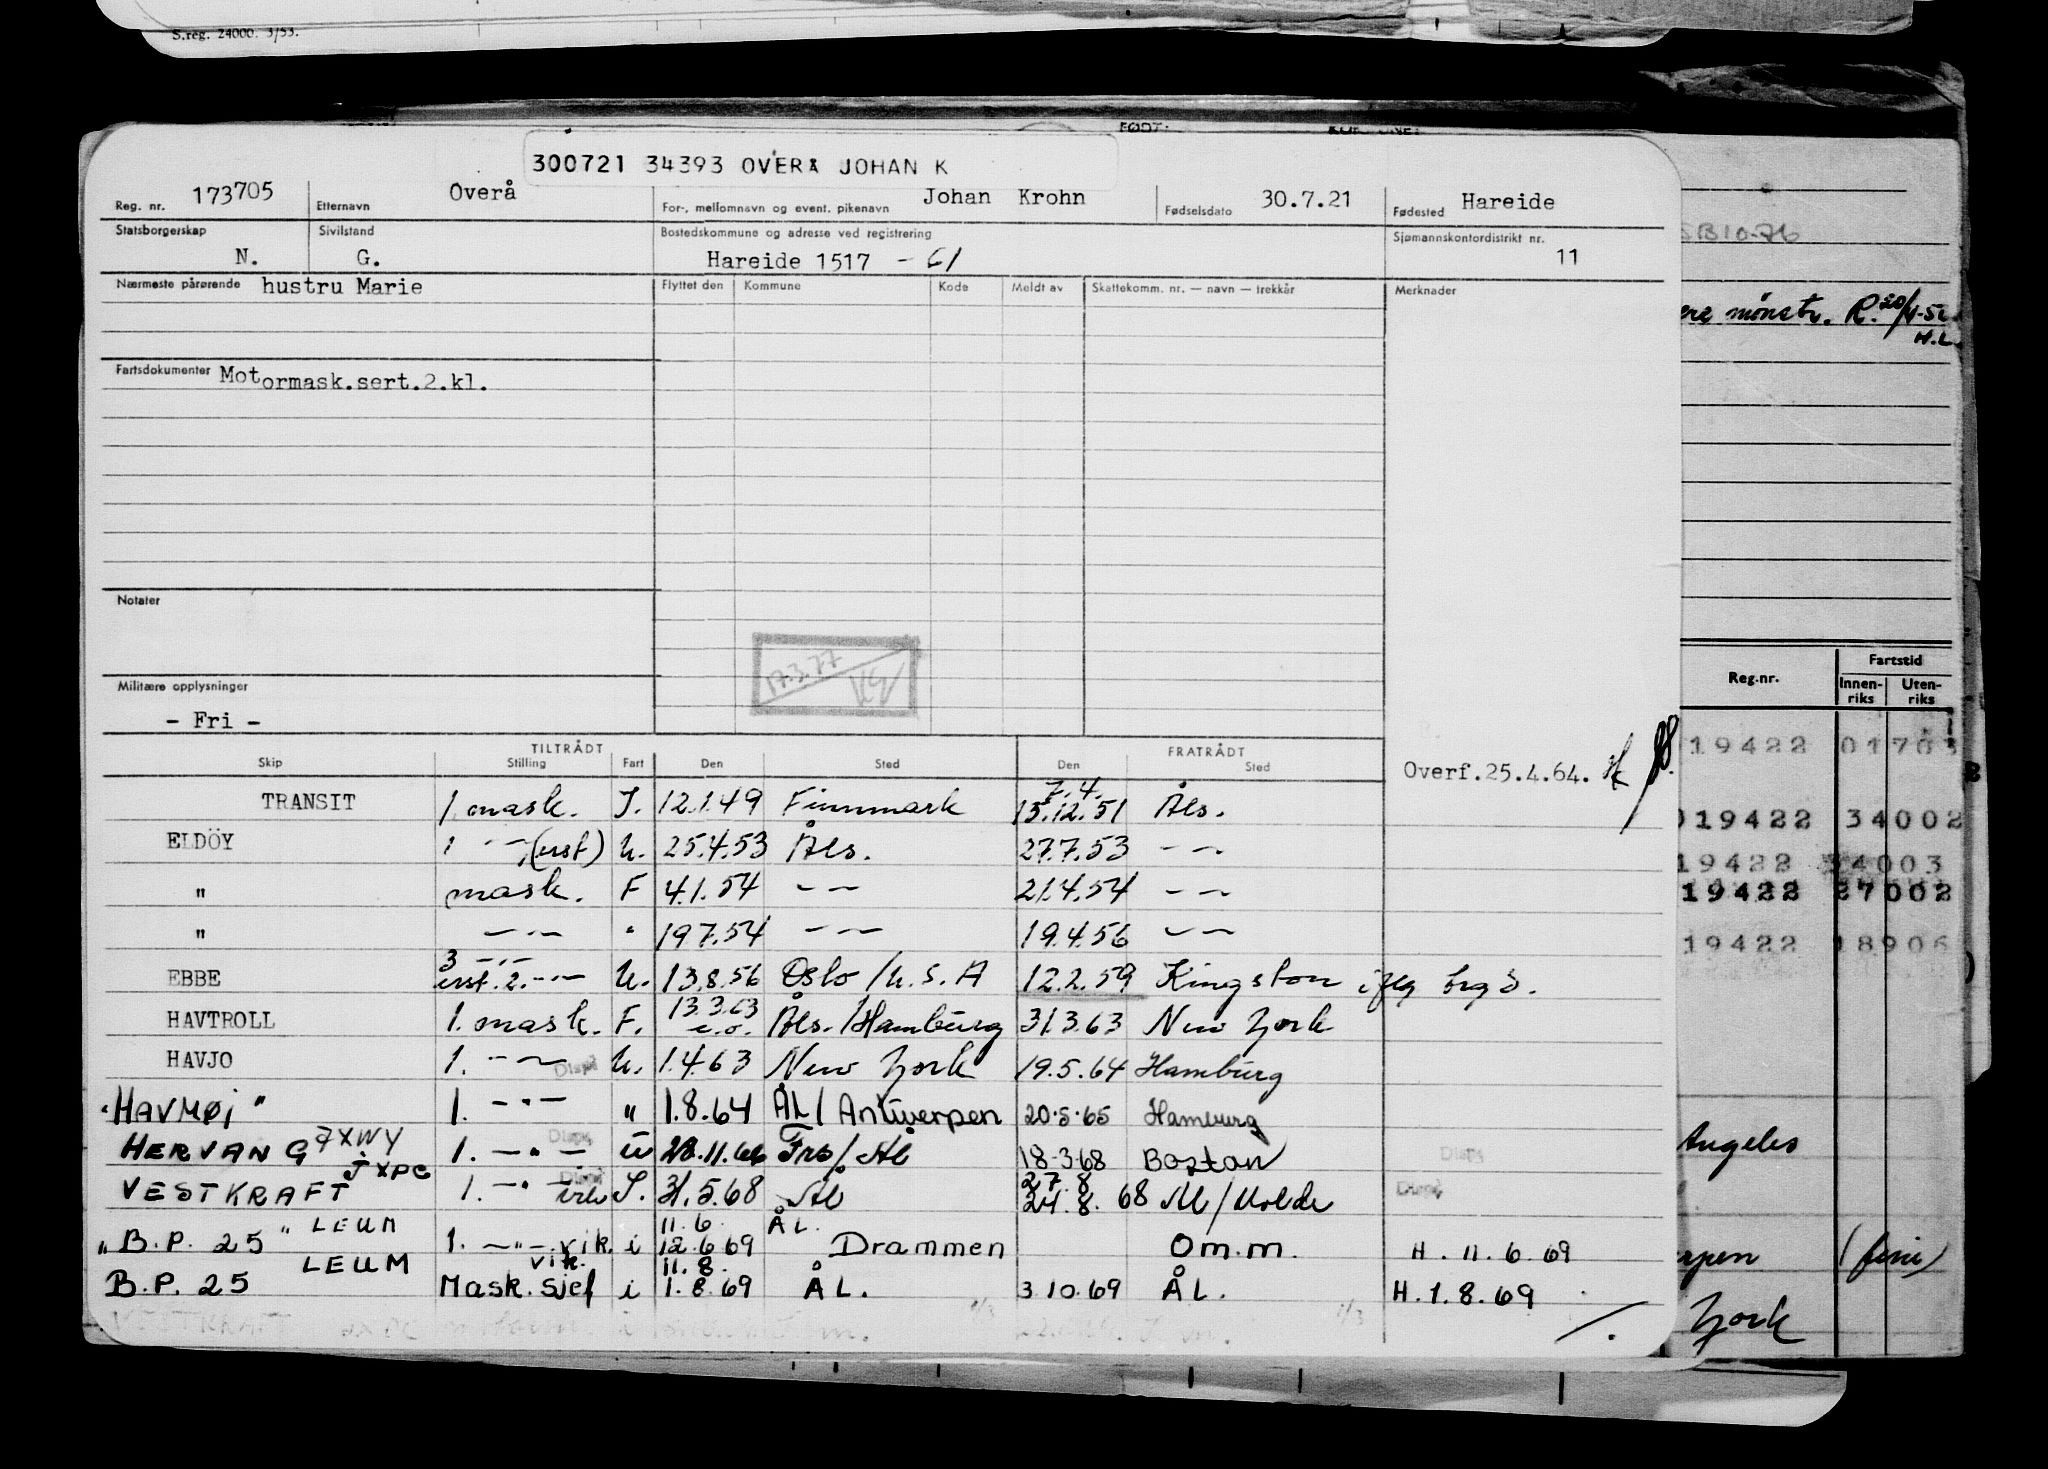 S.reg. 24000. 3/53.
FØDT:
300721 34393 OVERÅ JOHAN K
Reg. nr. 173705 Etternavn Overå For-, mellomnavn og event. pikenavn Johan Krohn Fødselsdato 30.7.21 Fødested Hareide
Statsborgerskap N. Sivilstand G. Bostedskommune og adresse ved registrering Hareide 1517 - 61 Sjømannskontordistrikt nr. 11
Nærmeste pårørende hustru Marie Flyttet den Kommune Kode Meldt av Skattekomm. nr. — navn — trekkår Merknader
Fartsdokumenter Motormask.sert.2.kl.
Notater
17.3.77
Militære opplysninger
- Fri -
TILTRÅDT FRATRÅDT
Skip Stilling Fart Den Sted Den Sted
Overf.25.4.64.
7.4.
TRANSIT 1. mask. I. 12.1.49 Finnmark 15.12.51 Åls.
ELDÖY 1 -"- (erst) U. 25.4.53 Åls. 27.7.53 -"-
" mask. F 4.1.54 -"- 21.4.54 -"-
" -"- " 19.7.54 -"- 19.4.56 -"-
3 -"-
EBBE erst. 2. -"- U. 13.8.56 Oslo / U.S.A 12.2.59 Kingston
13.3.63
HAVTROLL 1. mask. F. Åls. / Hamburg 31.3.63 New York
HAVJO 1. -"- U. 1.4.63 New York 19.5.64 Hamburg
"HAVMØI" 1. -"- " 1.8.64 ÅL / Antwerpen 20.5.65 Hamburg
HERVANG JXWY 1. -"- U 28.11.66 Fra / Ål 18-3.68 Boston
JXPC
VESTKRAFT 1. -"- I. 31.5.68 Ål 24.8.68 M / Molde
27.8
" LEUM 11.6 ÅL.
"B.P. 25 1. -"- vik. i 12.6.69 Drammen Om.m. H. 11.6.69
LEUM vik. 11.8.
B.P. 25 Mask. sjef i 1.8.69 ÅL. 3.10.69 ÅL. H.1.8.69
VESTKRAFT
SB10-76
mønstr. R. 20/4-52
H.L.
Reg.nr. Fartstid
Innen-riks Uten-riks
19422 01703
019422 34002
19422 34003
19422 27002
19422 18906
Angeles
York